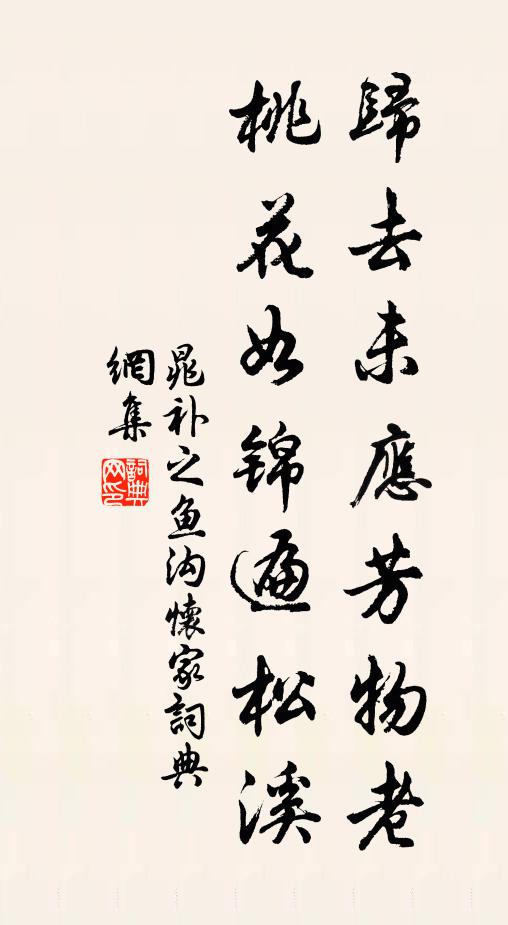 歸去未應芳物老
桃花如锦遍松溪
晁补之鱼沟懷家詞典
網集
詞典
网印